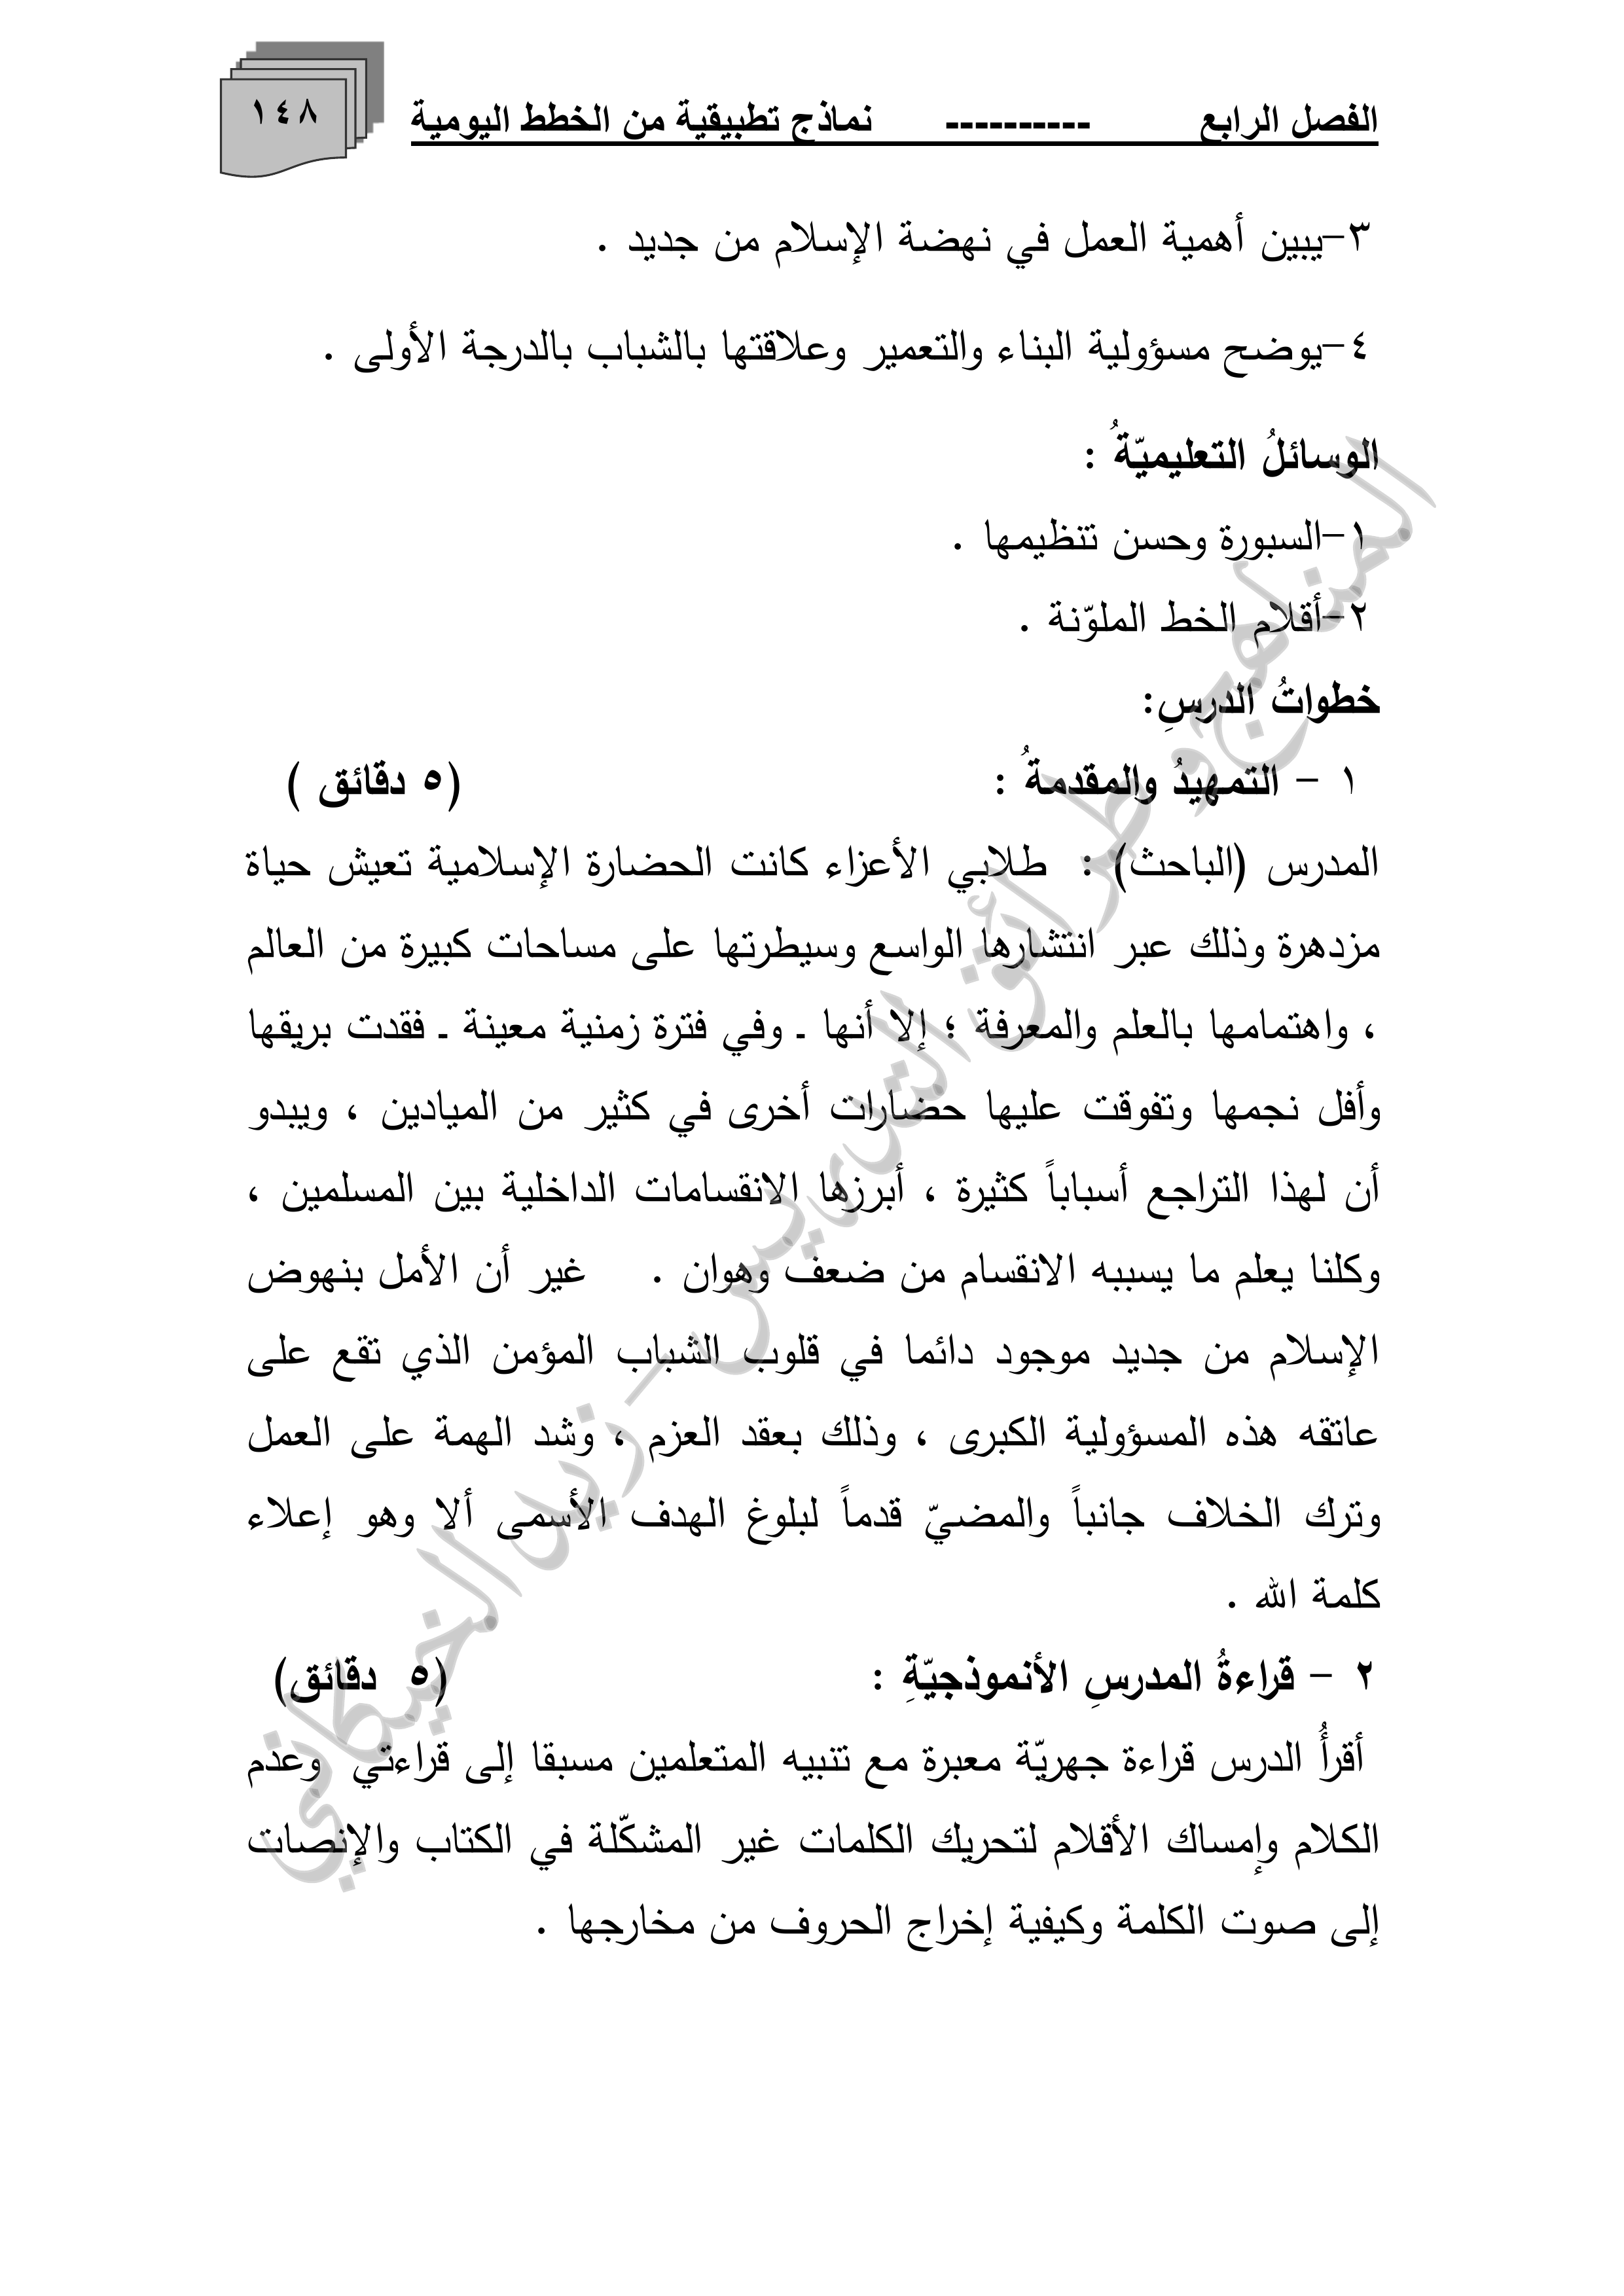 الفصل الرابع ---------- نماذج تطبيقية من الخطط اليومية ١٤٨
٣–يبين أهمية العمل في نهضة الإسلام من جديد .
٤–يوضح مسؤولية البناء والتعمير وعلاقتها بالشباب بالدرجة الأولى .
الوسائلُ التعليميّةُ :
١–السبورة وحسن تنظيمها .
٢–أقلام الخط الملوّنة .
خطواتُ الدرسِ:
١ – التمهيدُ والمقدمةُ : (٥ دقائق )
المدرس (الباحث) : طلابي الأعزاء كانت الحضارة الإسلامية تعيش حياة
مزدهرة وذلك عبر انتشارها الواسع وسيطرتها على مساحات كبيرة من العالم
، واهتمامها بالعلم والمعرفة ؛ إلا أنها ـ وفي فترة زمنية معينة ـ فقدت بريقها
وأفل نجمها وتفوقت عليها حضارات أخرى في كثير من الميادين ، ويبدو
أن لهذا التراجع أسباباً كثيرة ، أبرزها الانقسامات الداخلية بين المسلمين ،
وكلنا يعلم ما يسببه الانقسام من ضعف وهوان . غير أن الأمل بنهوض
الإسلام من جديد موجود دائما في قلوب الشباب المؤمن الذي تقع على
عاتقه هذه المسؤولية الكبرى ، وذلك بعقد العزم ، وشد الهمة على العمل
وترك الخلاف جانباً والمضيّ قدماً لبلوغ الهدف الأسمى ألا وهو إعلاء
كلمة الله .
٢ – قراءةُ المدرسِ الأنموذجيّةِ : (٥ دقائق)
أقرأُ الدرس قراءة جهريّة معبرة مع تنبيه المتعلمين مسبقا إلى قراءتي وعدم
الكلام وإمساك الأقلام لتحريك الكلمات غير المشكّلة في الكتاب والإنصات
إلى صوت الكلمة وكيفية إخراج الحروف من مخارجها .
المناهج وطرائق التدريس - زيد الخيكاني